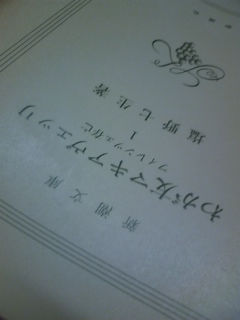 新潮文庫
わが友マキアヴェッリ
フィレンツェ存亡
1
塩野七生著